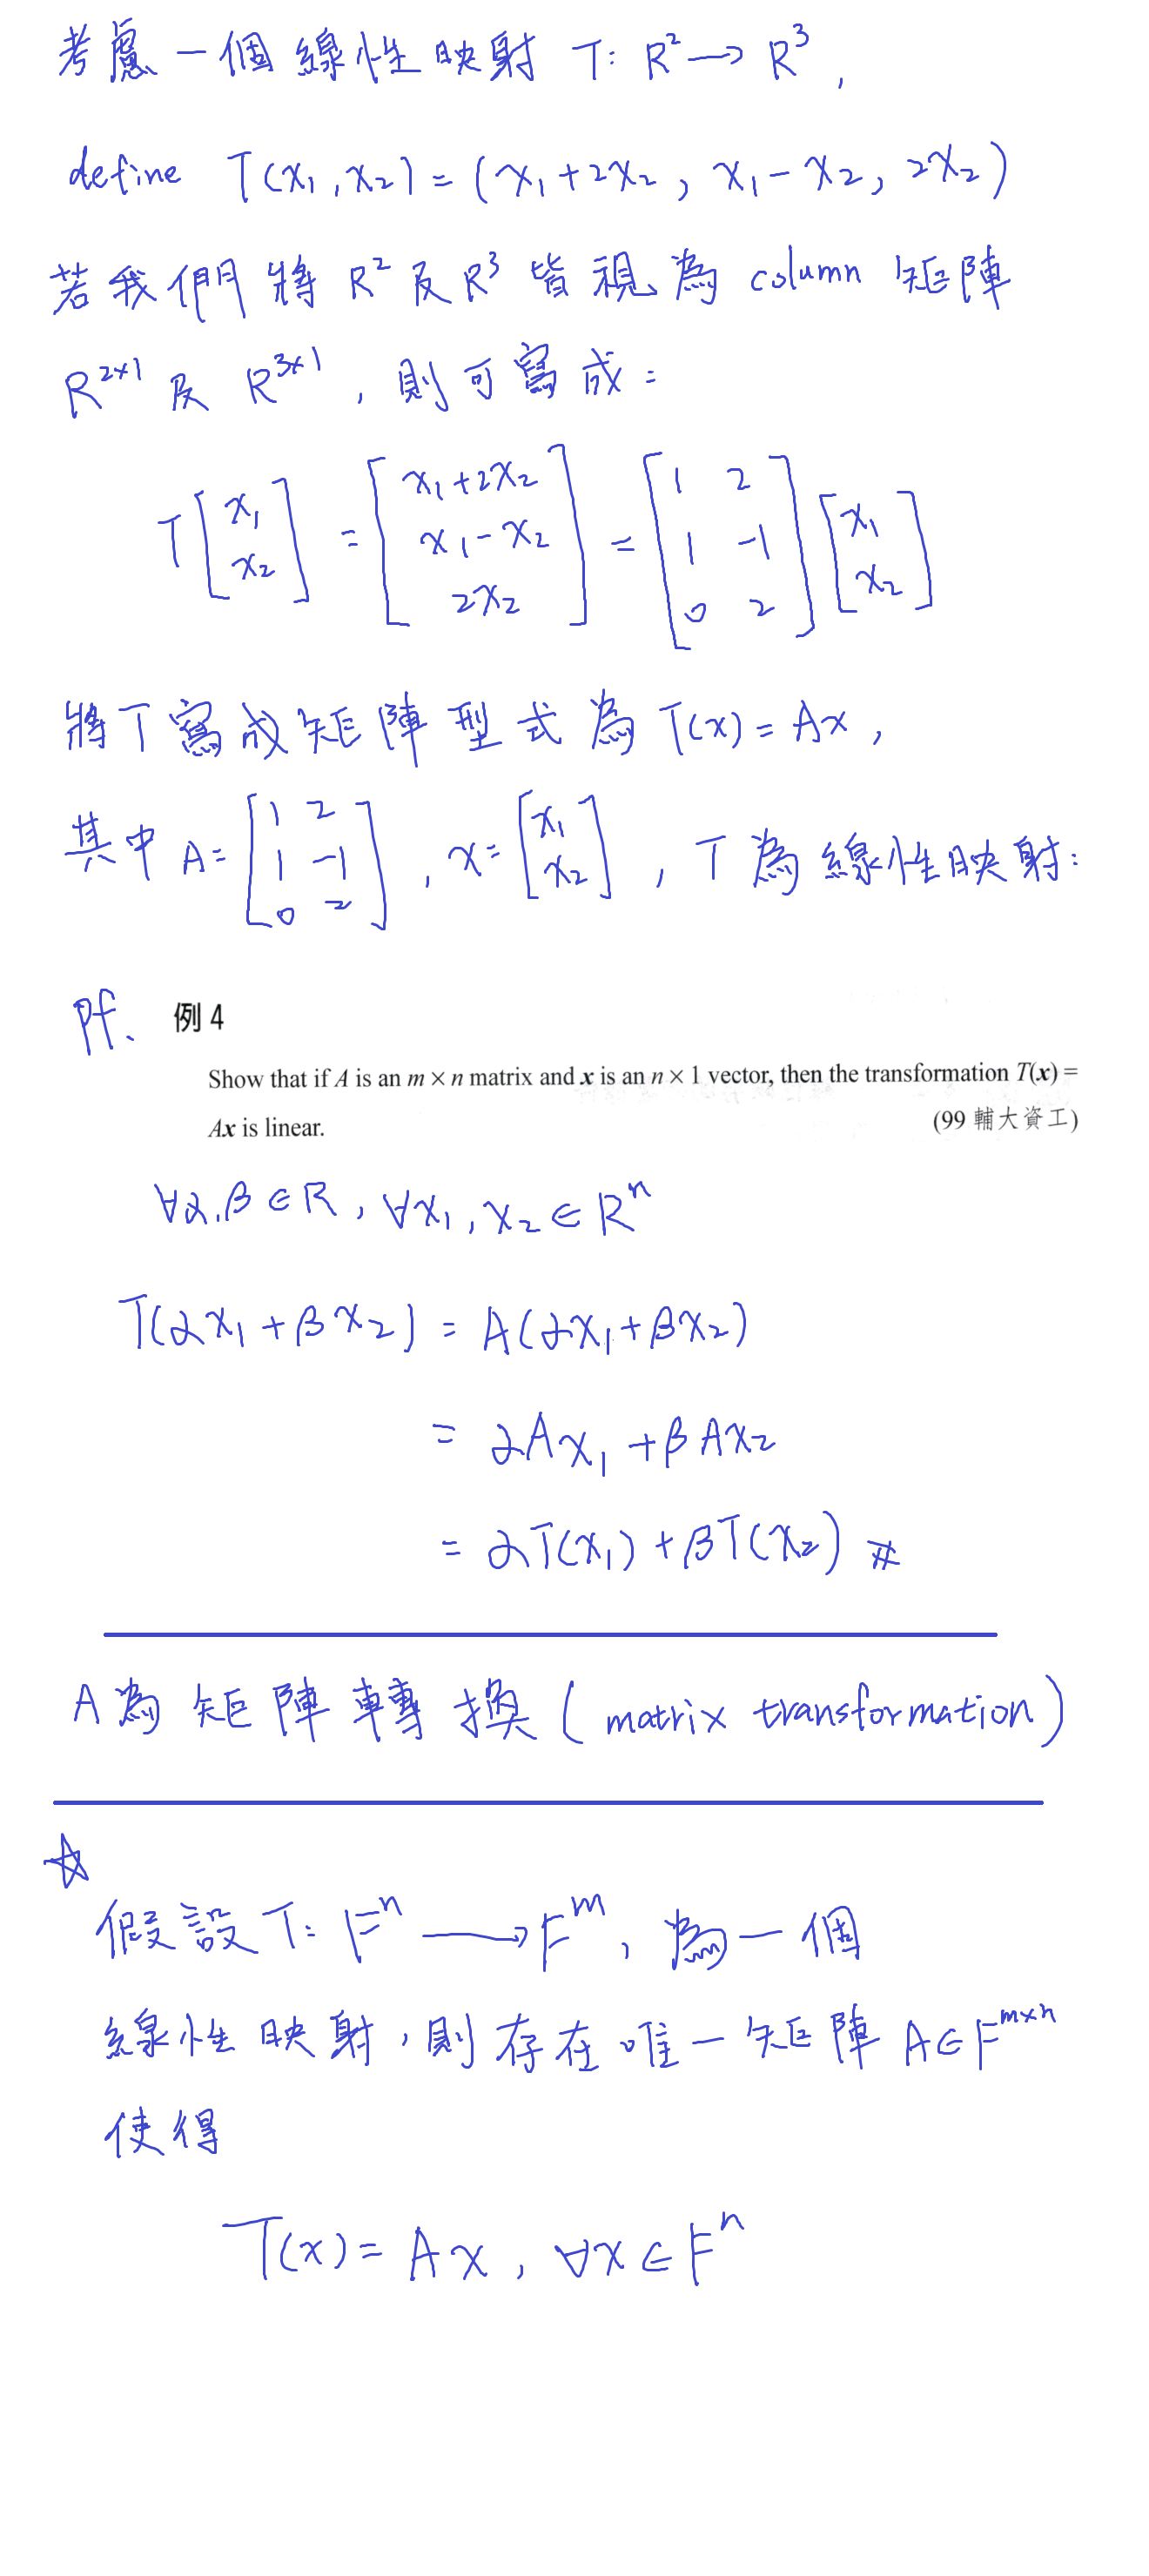 考慮一個線性映射 T: R² → R³,
define T(x₁,x₂) = (x₁+2x₂, x₁-x₂, 2x₂)
若我們將 R² 及 R³ 皆視為 column 矩陣
R^{2×1} 及 R^{3×1}, 則可寫成:
T[x₁ x₂] = [x₁+2x₂ x₁-x₂ 2x₂] = [1 2 1 -1 0 2][x₁ x₂]
將T寫成矩陣型式為 T(x) = Ax,
其中 A = [1 2 1 -1 0 2], x = [x₁ x₂], T為線性映射:
pf. 例 4
Show that if A is an m × n matrix and x is an n × 1 vector, then the transformation T(x) =
Ax is linear. (99 輔大資工)
∀α,β∈R, ∀x₁,x₂∈Rⁿ
T(αx₁+βx₂) = A(αx₁+βx₂)
= αAx₁+βAx₂
= αT(x₁)+βT(x₂) #
A為矩陣轉換(matrix transformation)
☆
假設T: Fⁿ → F^m, 為一個
線性映射,則存在唯一矩陣 A∈F^{m×n}
使得
T(x) = Ax, ∀x∈Fⁿ